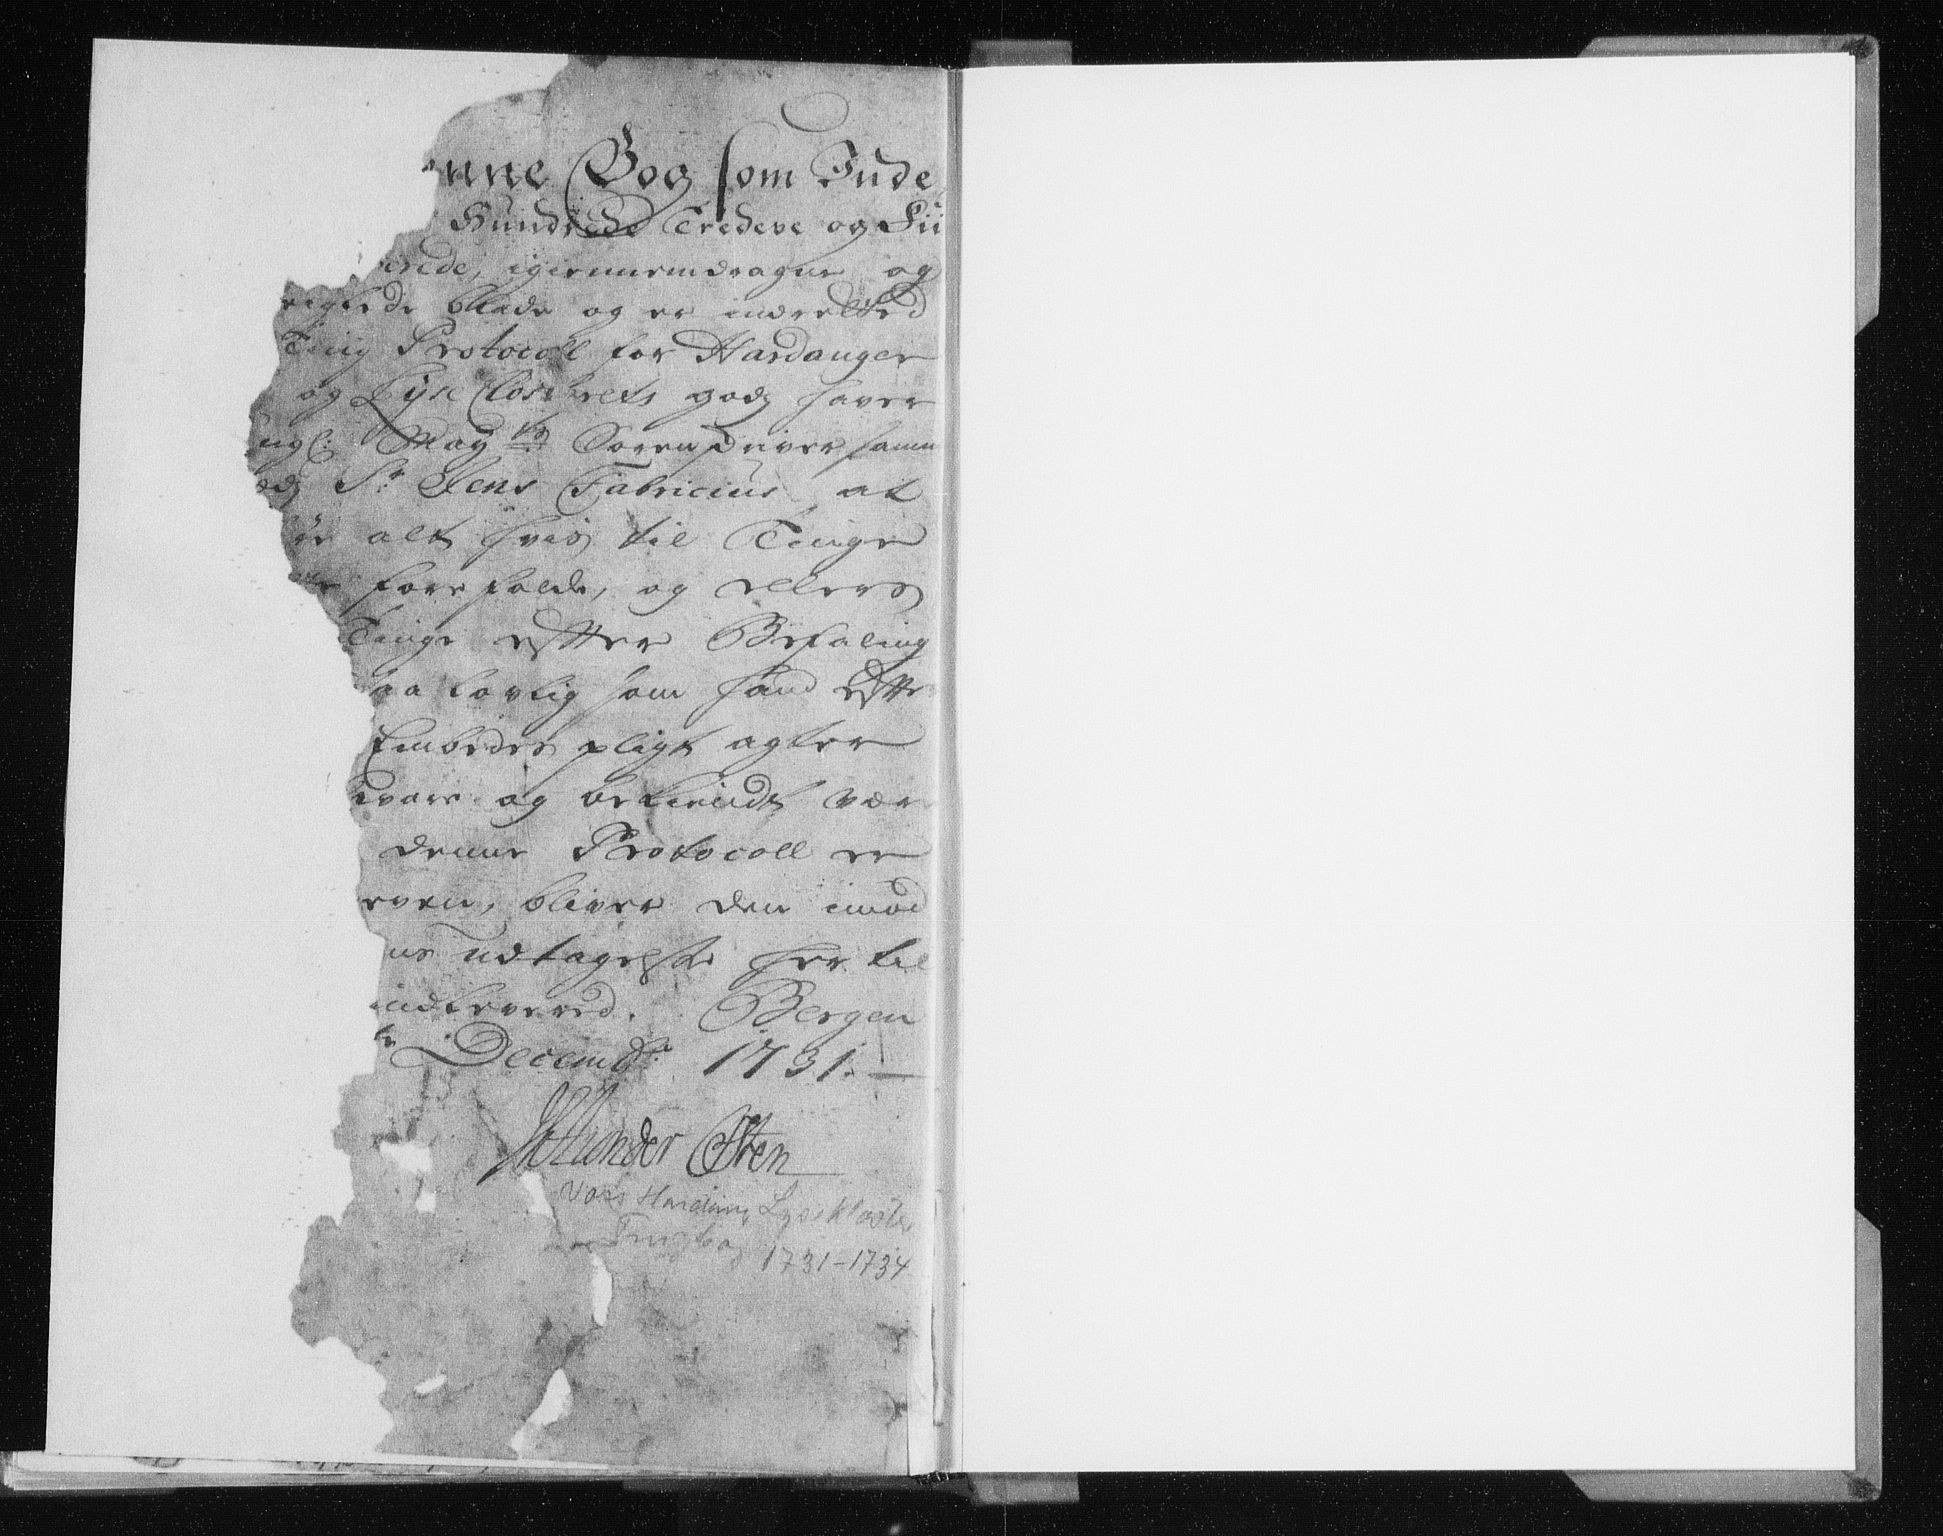 enne Bog som Inde
Hundrede Tredeve og Fii
erede, igiennemdragne og
rigtede blade og er indretted
Ting Protocoll for Hardanger
og Lyse Closterets gods haver
ngl: May tz Sorenskriver samm
eds Sr Jens Fabricius at
øre alt hvis til Tinge
forefalde, og ellers
Tinge efter Befaling
aa lovlig som hand efte
Embedes pligt agter
svare og bekiendt være
denne Protocoll er
even, bliver den imod
ns udtagelse her til
indlevered. Bergen
te Decembr 1731.
Ulander Østen
Voss Hardang Lysekloster
Tingbog 1731-1734